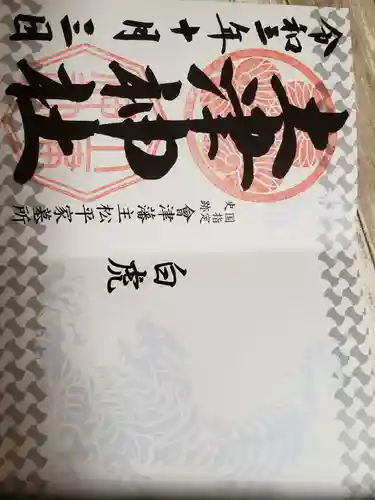 令和三年十月三日
土津神社
国指定
史跡
會津藩主松平家墓所
白虎